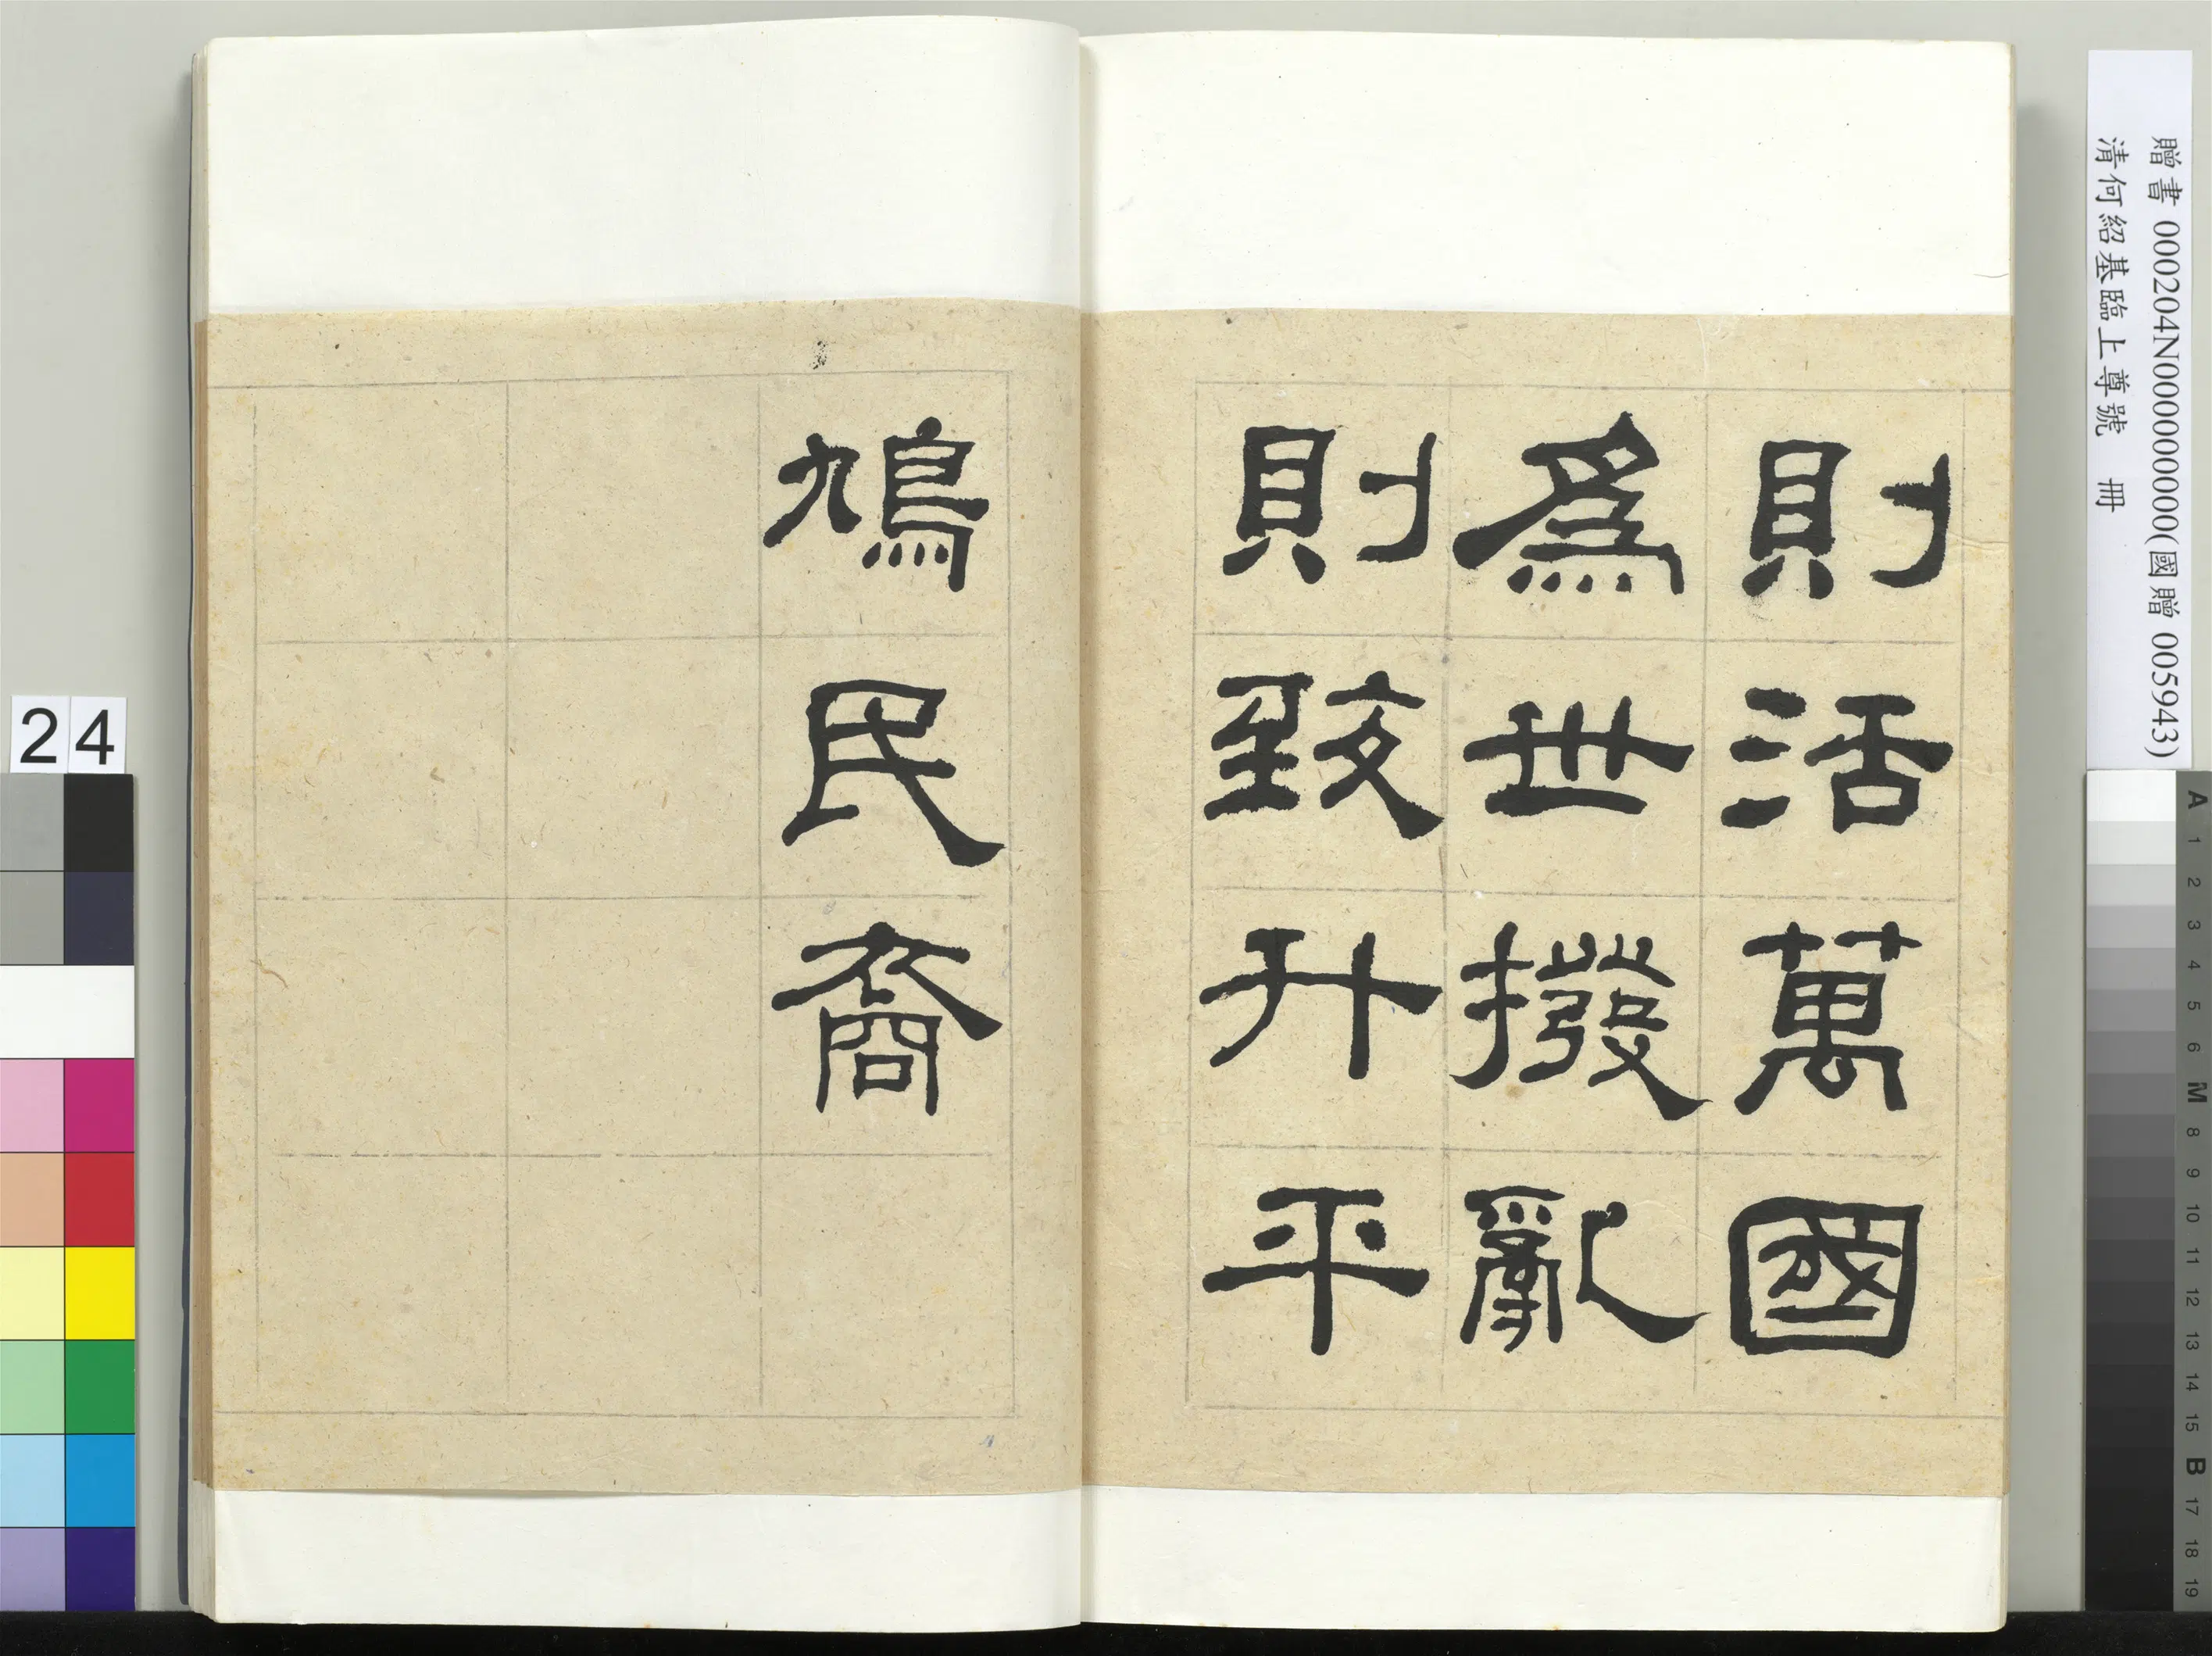 則活萬國
爲世撥亂
則致升平
鳩民裔
贈書 000204N000000000(國贈 005943)
清何紹基臨上尊號 冊
24
A 1 2 3 4 5 6 M 8 9 10 11 12 13 14 15 B 17 18 19